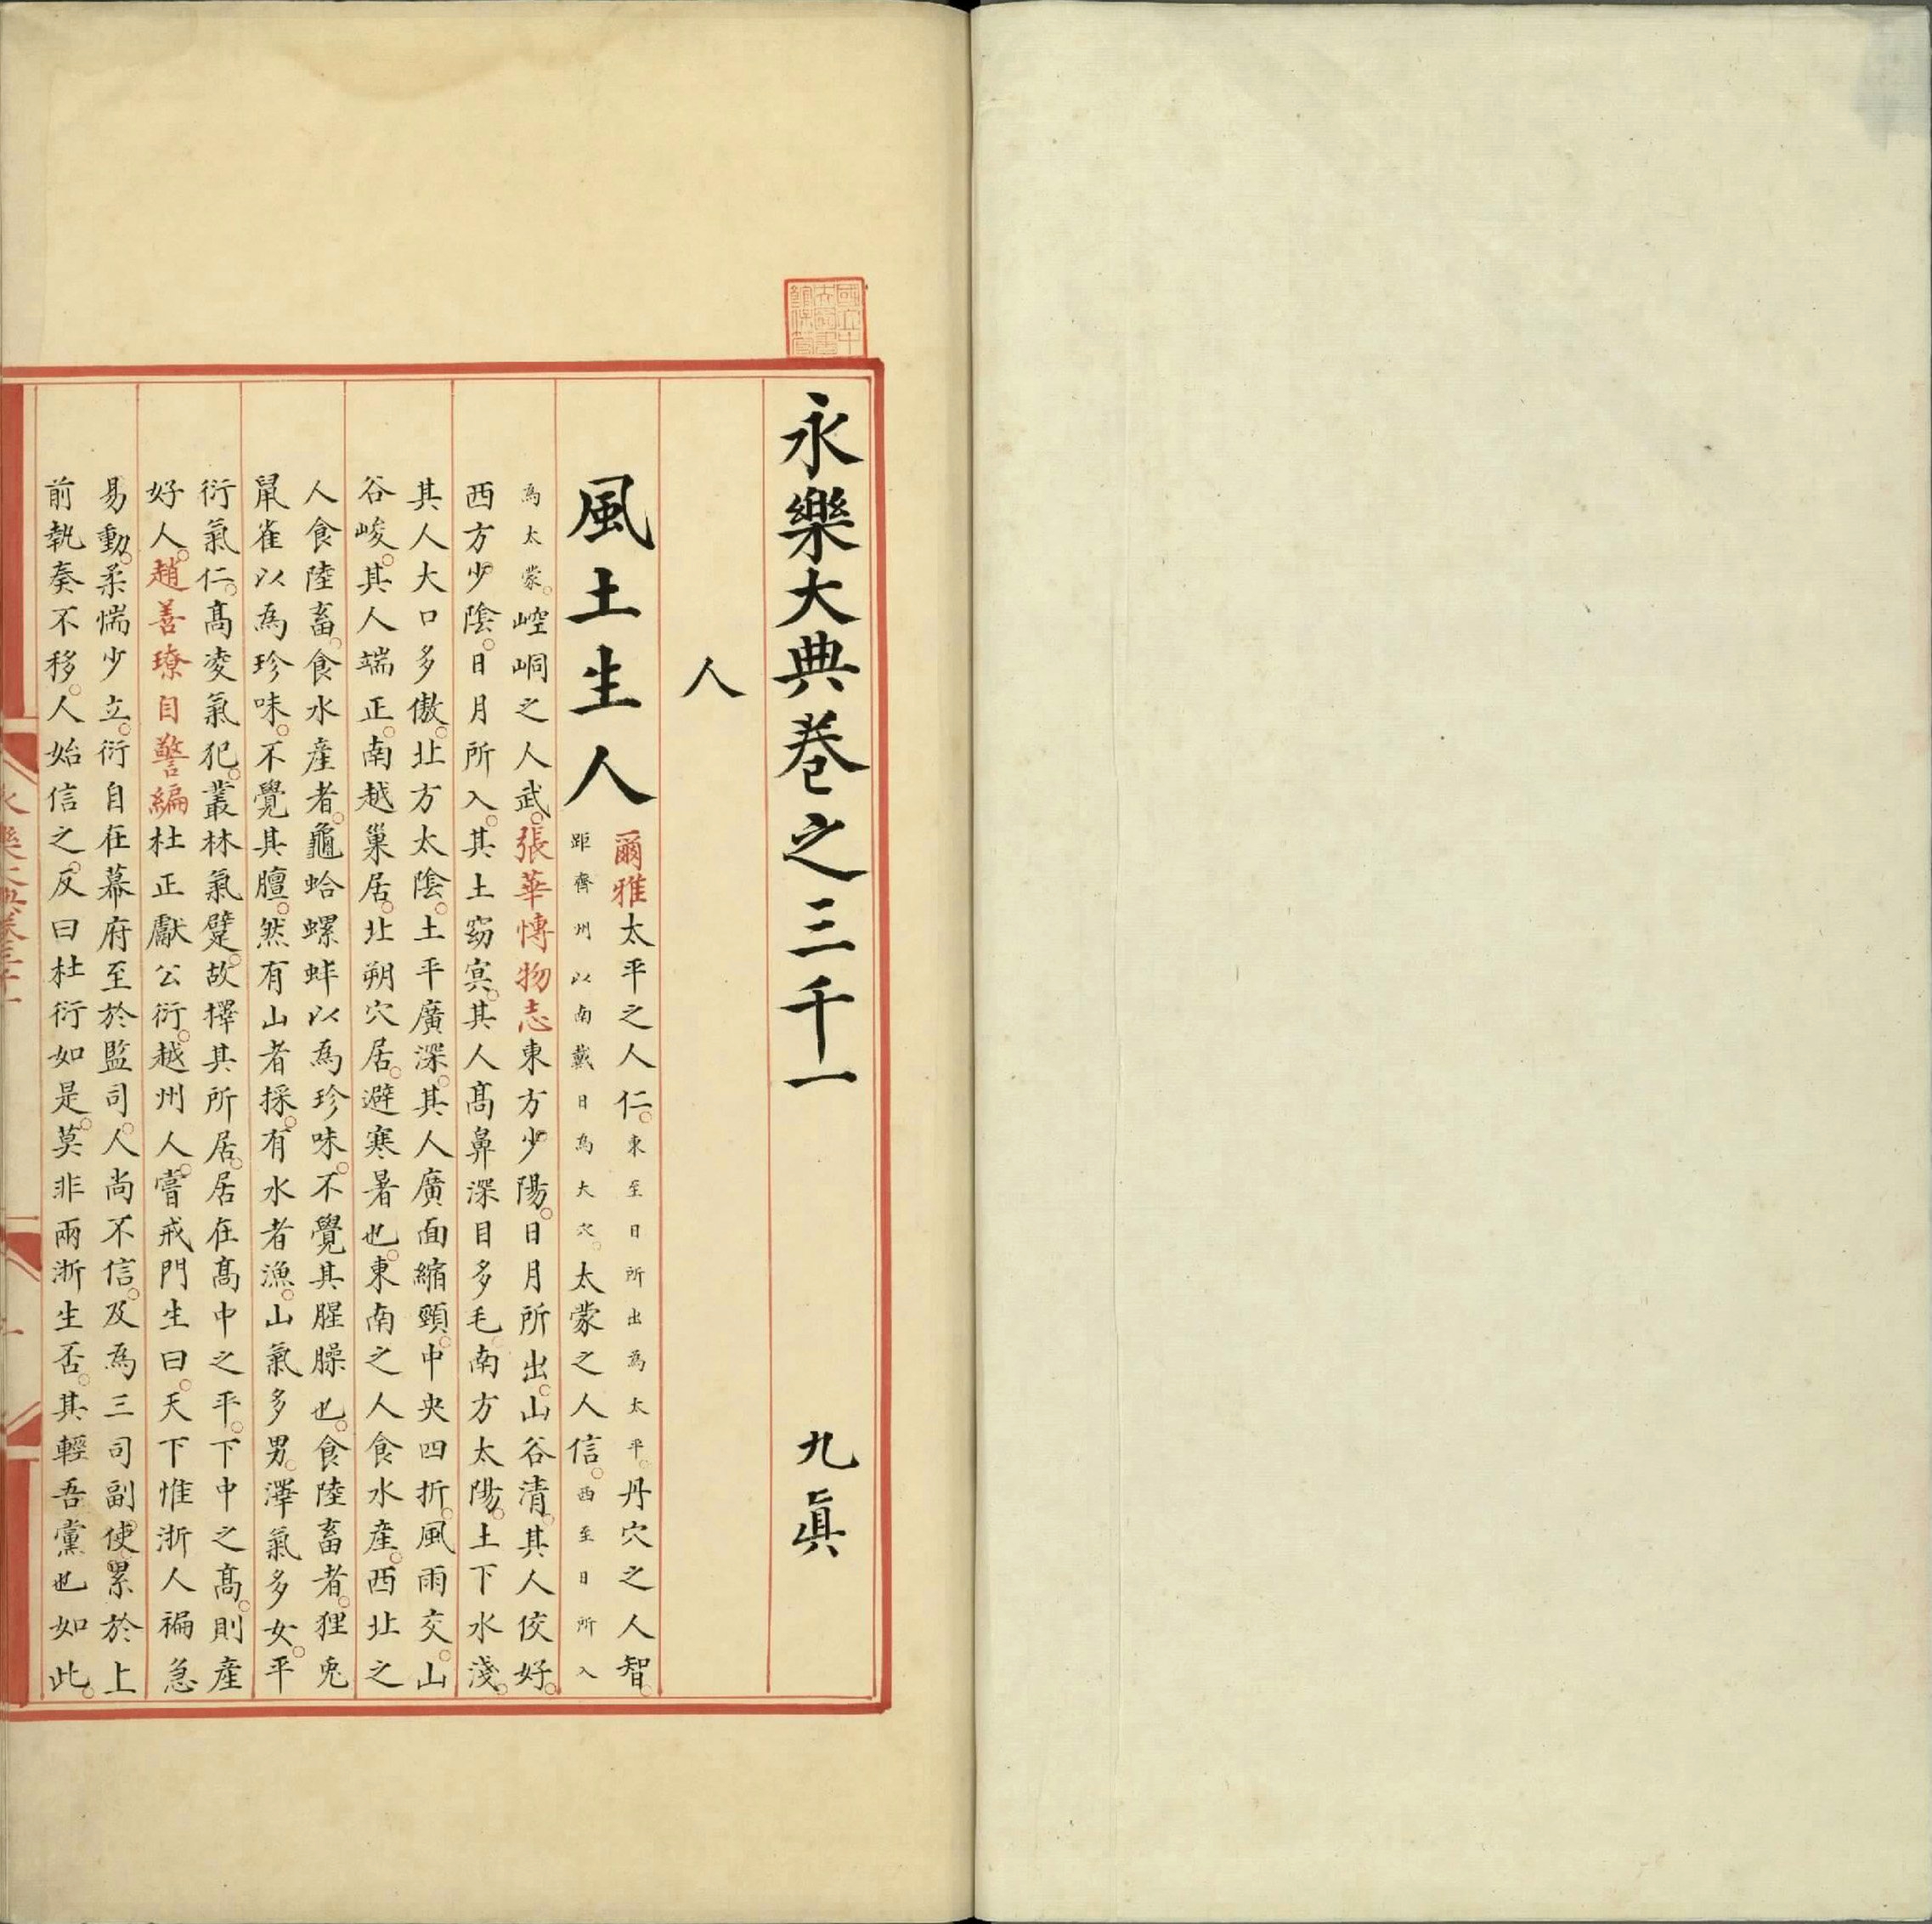 國立中央圖書館保管
永樂大典卷之三千一 九眞
人
風土生人
爾雅太平之人仁。東至日所出為太平。丹穴之人智。
距齊州以南戴日為大穴。太蒙之人信。西至日所入
為太蒙。崆峒之人武。張華愽物志東方少陽。日月所出。山谷清。其人佼好。
西方少陰。日月所入。其土窈冥。其人髙鼻深目多毛。南方太陽。土下水淺。
其人大口多傲。北方太陰。土平廣深。其人廣面縮頸。中央四折。風雨交。山
谷峻。其人端正。南越巢居。北朔穴居。避寒暑也。東南之人食水産。西北之
人食陸畜。食水産者。龜蛤螺蚌以為珍味。不覺其腥臊也。食陸畜者。狸兎
鼠雀以為珍味。不覺其膻。然有山者採。有水者漁。山氣多男。澤氣多女。平
衍氣仁。髙凌氣犯。叢林氣躄。故擇其所居。居在髙中之平。下中之髙。則産
好人。趙善璙自警編杜正獻公衍。越州人。嘗戒門生曰。天下惟浙人褊急
易動。柔惴少立。衍自在幕府至於監司。人尚不信。及為三司副使。累於上
前執奏不移。人始信之。反曰杜衍如是。莫非兩浙生否。其輕吾黨也如此。